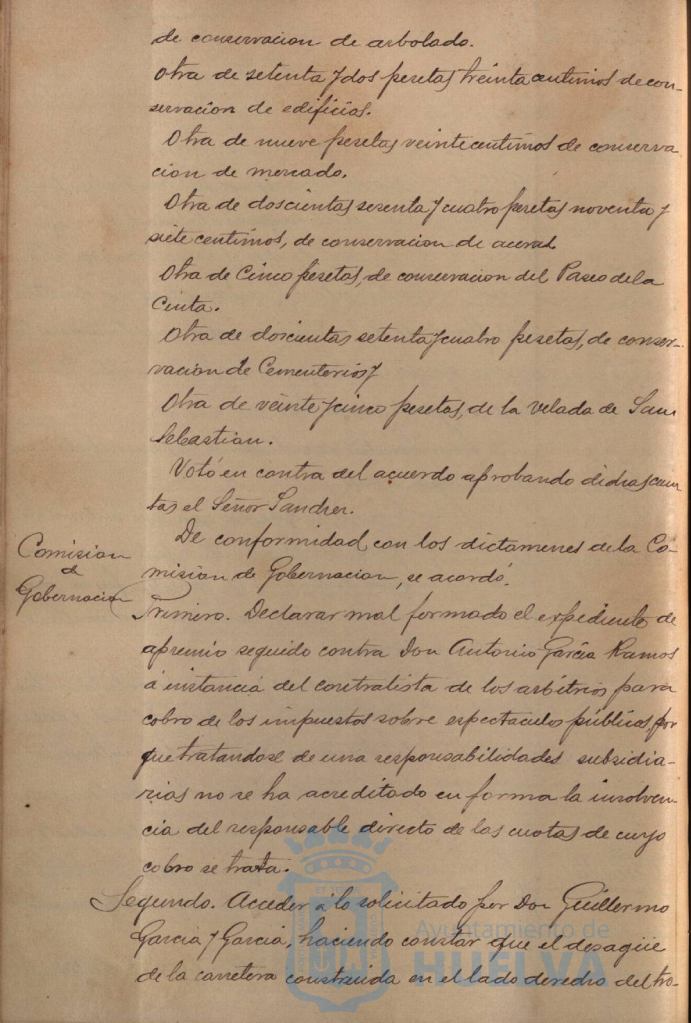 de conservacion de arbolado.
Otra de setenta y dos pesetas treinta centimos de con-
servacion de edificios.
Otra de nueve pesetas veinte centimos de conserva
cion de mercado.
Otra de doscientas sesenta y cuatro pesetas noventa y
siete centimos, de conservacion de aceras
Otra de Cinco pesetas, de conservacion del Paseo de la
Cinta.
Otra de doscientas setenta y cuatro pesetas, de conser-
vacion de Cementerios y
Otra de veinte y cinco pesetas, de la Velada de San
Sebastian.
Votó en contra del acuerdo aprobando dichas cuen
tas el Señor Sanchez.
De conformidad con los dictamenes de la Co-
mision de Gobernacion, se acordó.
Comision
de
Gobernacion
Primero. Declarar mal formado el expediente de
apremio seguido contra Don Antonio García Ramos
á instancia del contratista de los arbitrios para
cobro de los impuestos sobre espectaculos públicos por
que tratandose de una responsabilidades subsidia-
rias no se ha acreditado en forma la insolven-
cia del responsable directo de las cuotas de cuyo
cobro se trata.
Segundo. Acceder á lo solicitado por Don Guillermo
Garcia y Garcia, haciendo constar que el desagüe
de la carretera construida en el lado derecho del tro-
Ayuntamiento de
HUELVA